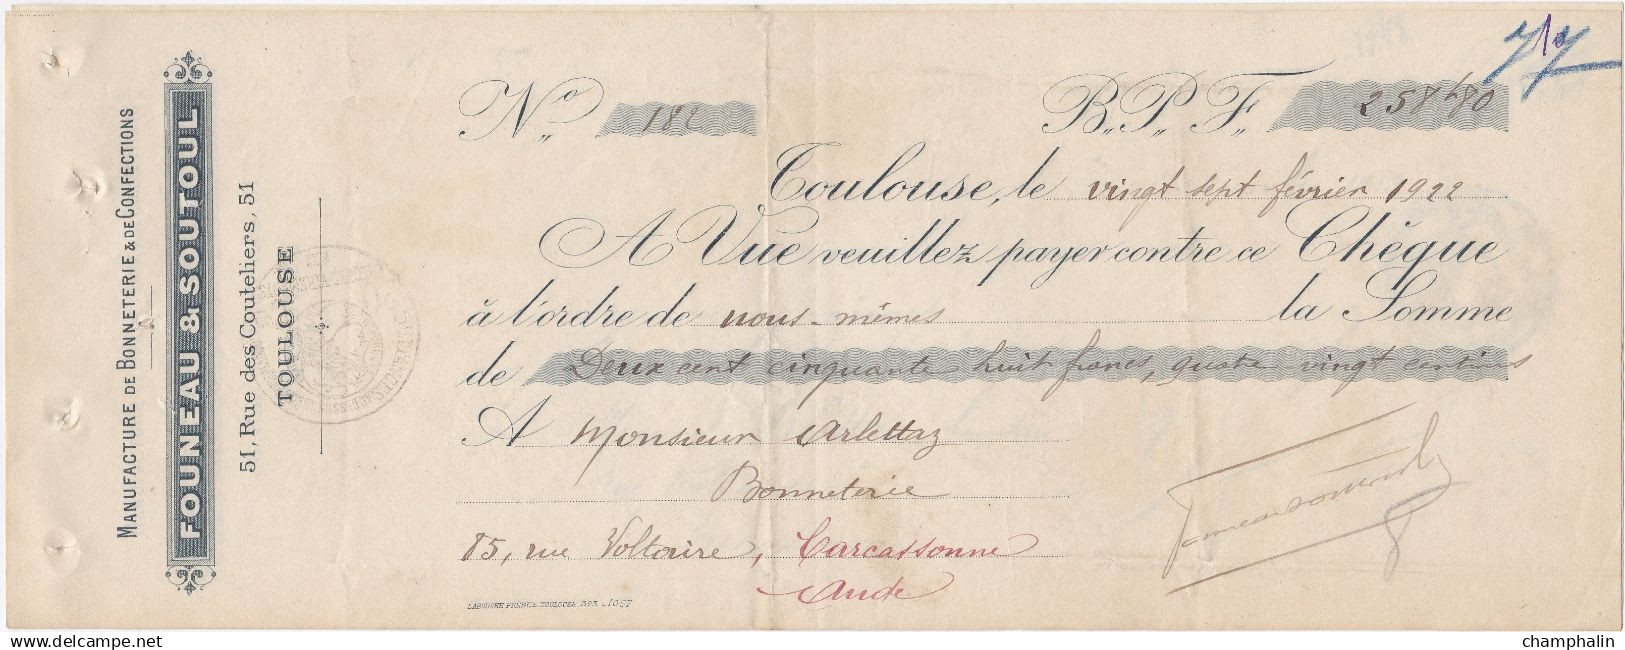 MANUFACTURE DE BONNETERIE & DE CONFECTIONS
FOUNEAU & SOUTOUL
51, Rue des Couteliers, 51
TOULOUSE
N.º 182
B.P.F. 258f80
Toulouse, le vingt sept février 1922
A Vue veuillez payer contre ce Chèque
à l'ordre de nous-mêmes la Somme
de Deux cent cinquante huit francs, quatre vingt centimes
A Monsieur Arlettaz
Bonneterie
85, rue Voltaire, Carcassonne
Aude
Founeau Soutoul
LABOUCHE FRERES TOULOUSE
delcampe.net
champhalin